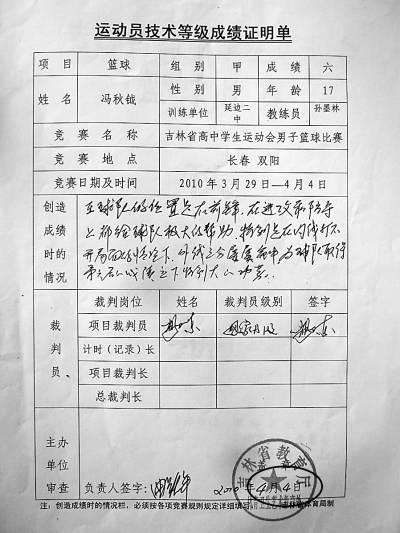 运动员技术等级成绩证明单
项目 篮球 组别 甲 成绩 六
姓名 冯秋钺 性别 男 年龄 17
训练单位 延边二中 教练员 孙墨林
竞赛名称 吉林省高中学生运动会男子篮球比赛
竞赛地点 长春 双阳
竞赛日期及时间 2010年3月29—4月4日
创造成绩时的情况
在球队的位置是在前锋,在进攻和防守
上都给球队极大的帮助,特别是在内线打不
开局面的情况下,外线三分屡屡命中为球队取得
裁判员
裁判岗位 姓名 裁判员级别 签字
项目裁判员 国家
计时(记录)长
项目裁判长
总裁判长
主办单位审查 负责人签字: 2010年4月4日
吉林省教育厅
注:创造成绩时的情况栏,必须按各项竞赛规则规定详细填写 教育局制